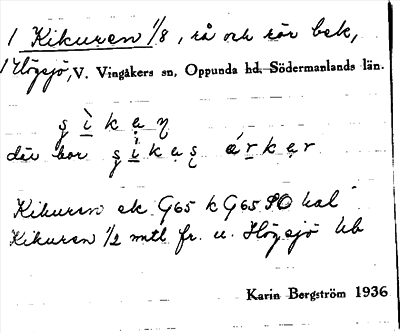 1 Kikuren 1/8, rå och rör bek,
1 Högsjö, V. Vingåkers sn, Oppunda hd, Södermanlands län.
där bor
Kikuren ek. G65 k G65 SO kal
Kikuren 1/2 mtl fr. u. Högsjö
Karin Bergström 1936